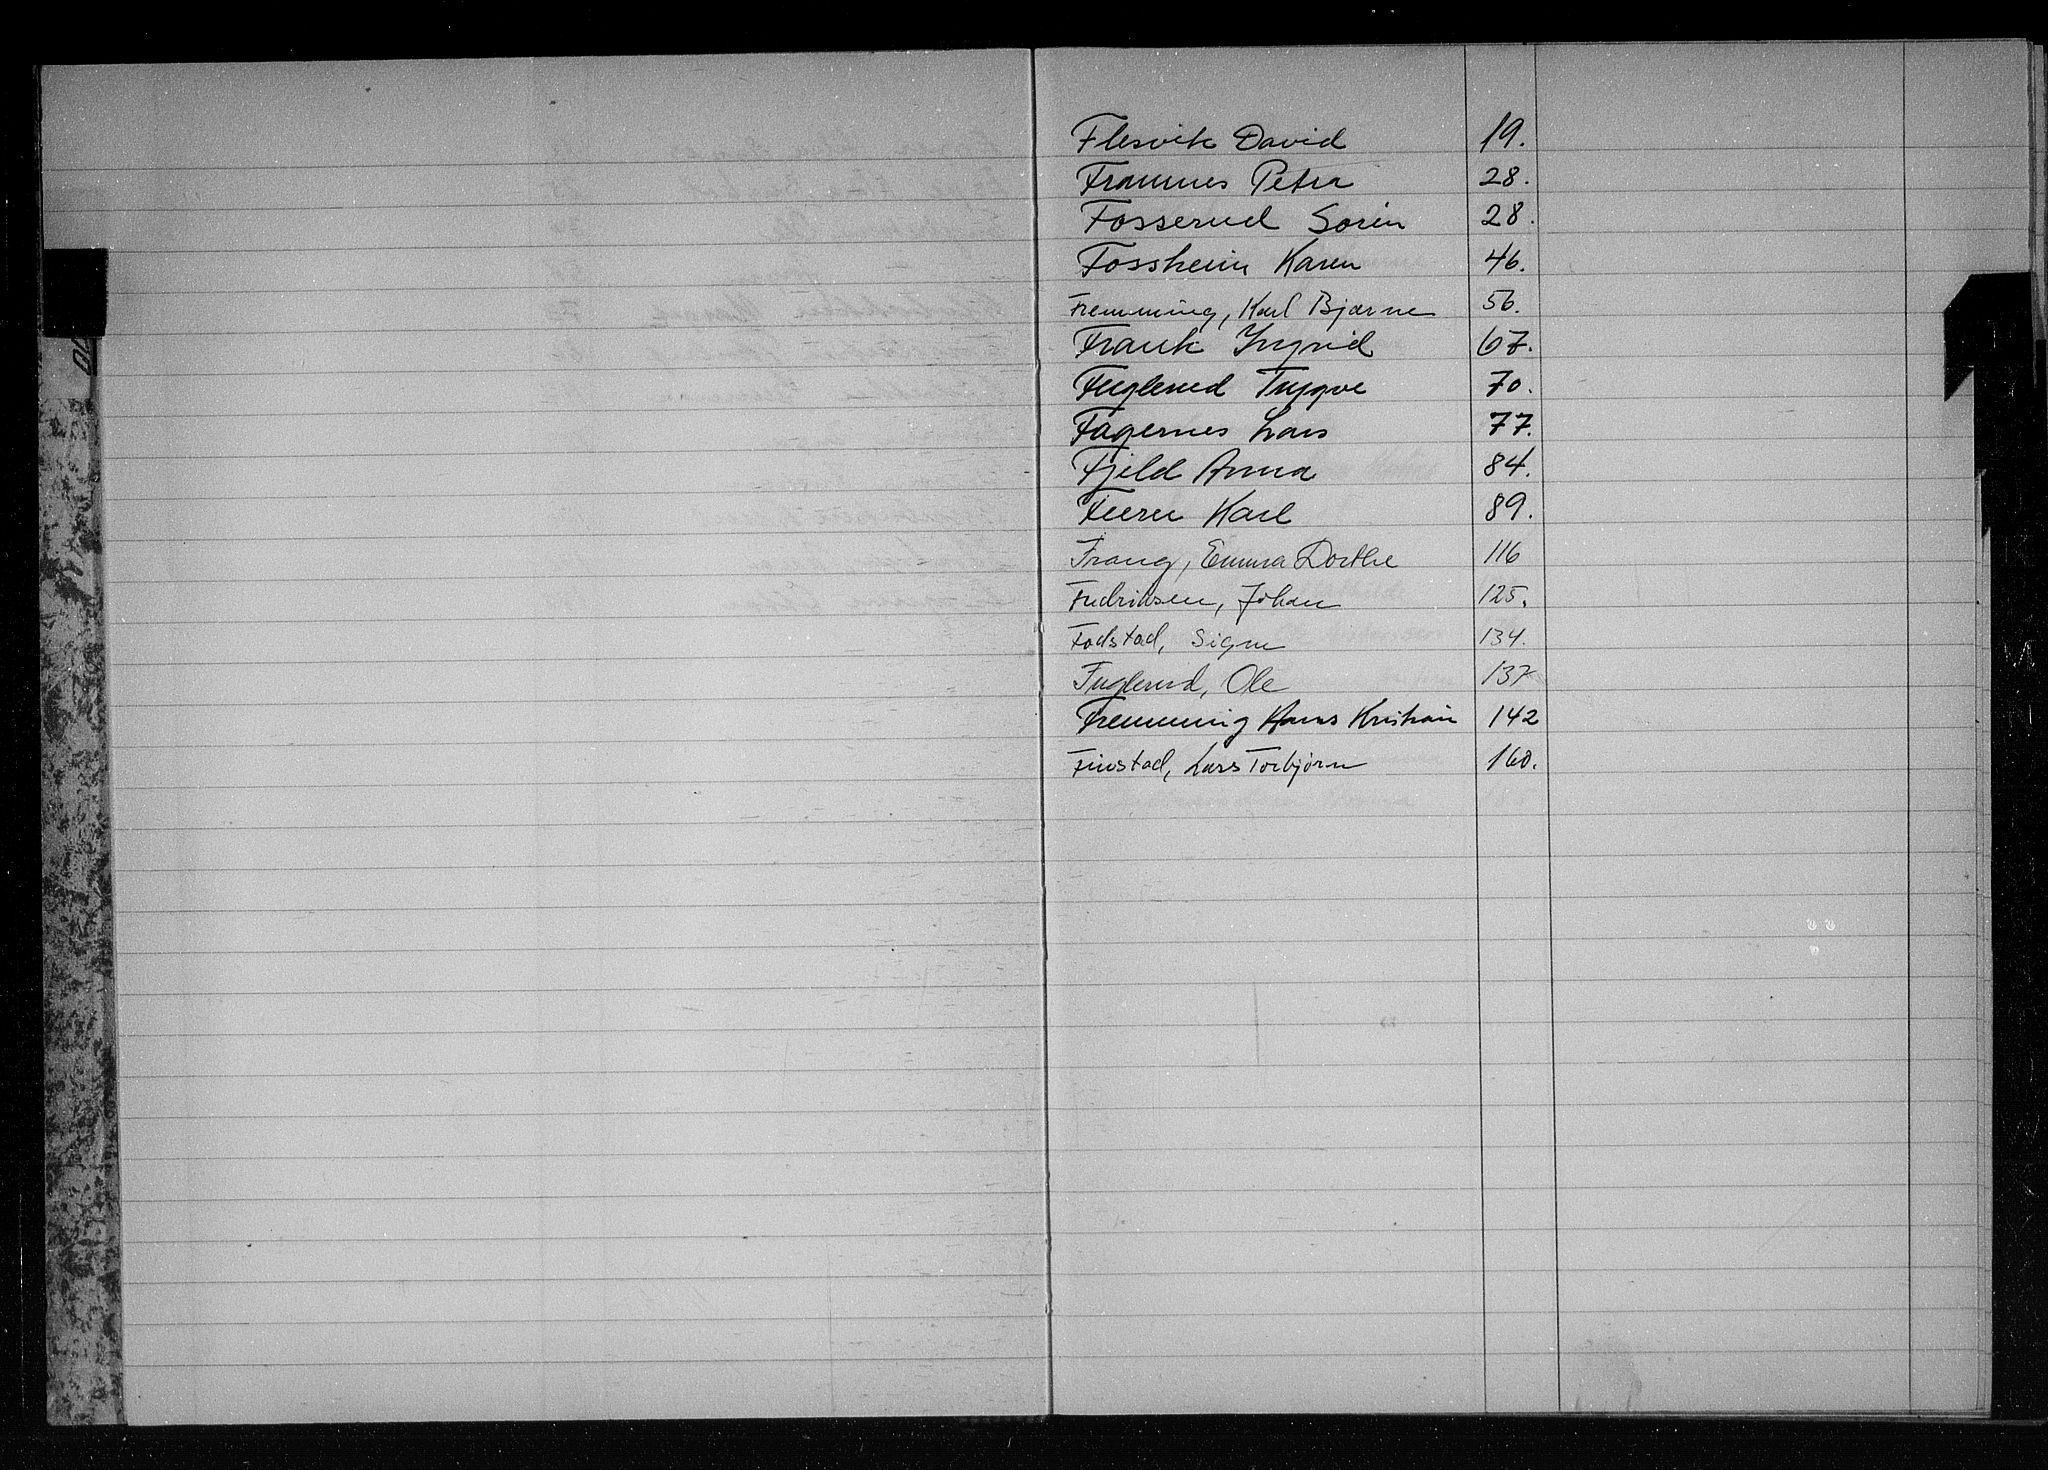 Flesvik David 19.
Framnes Petra 28.
Fosserud Sorin 28.
Fossheim Karen 46.
Fremming, Karl Bjarne 56.
Frank Ingrid 67.
Fuglerud Trygve 70.
Fagernes Lars 77.
Fjeld Anna 84.
Furu Karl 89.
Frang, Emma Dorthe 116
Fredriksen, Johan 125.
Fodstad, Signe 134.
Fuglerud, Ole 137
Fremming Hans Kristian 142
Finstad, Lars Torbjørn 160.